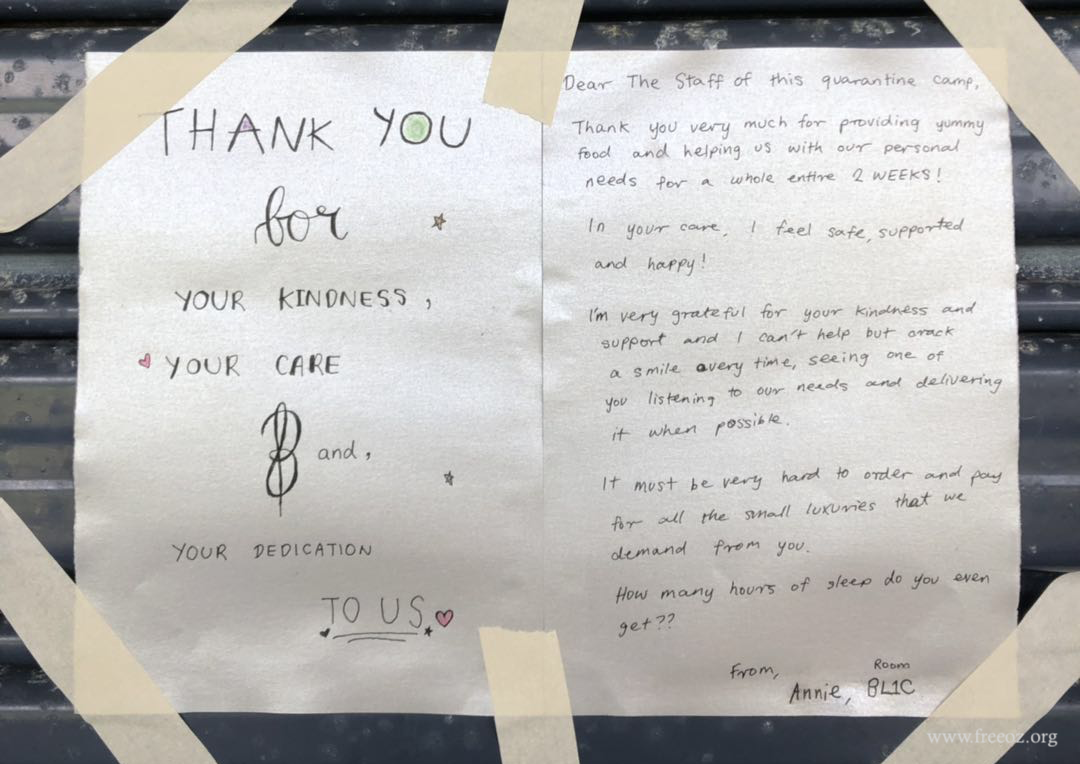 THANK YOU
for
YOUR KINDNESS,
YOUR CARE
& and,
YOUR DEDICATION
TO US
Dear The Staff of this quarantine camp,
Thank you very much for providing yummy
food and helping us with our personal
needs for a whole entire 2 WEEKS!
In your care, I feel safe, supported
and happy!
I'm very grateful for your kindness and
support and I can't help but crack
a smile every time, seeing one of
you listening to our needs and delivering
it when possible.
It must be very hard to order and pay
for all the small luxuries that we
demand from you.
How many hours of sleep do you even
get??
From,
Room
Annie, BL1C
www.freeoz.org